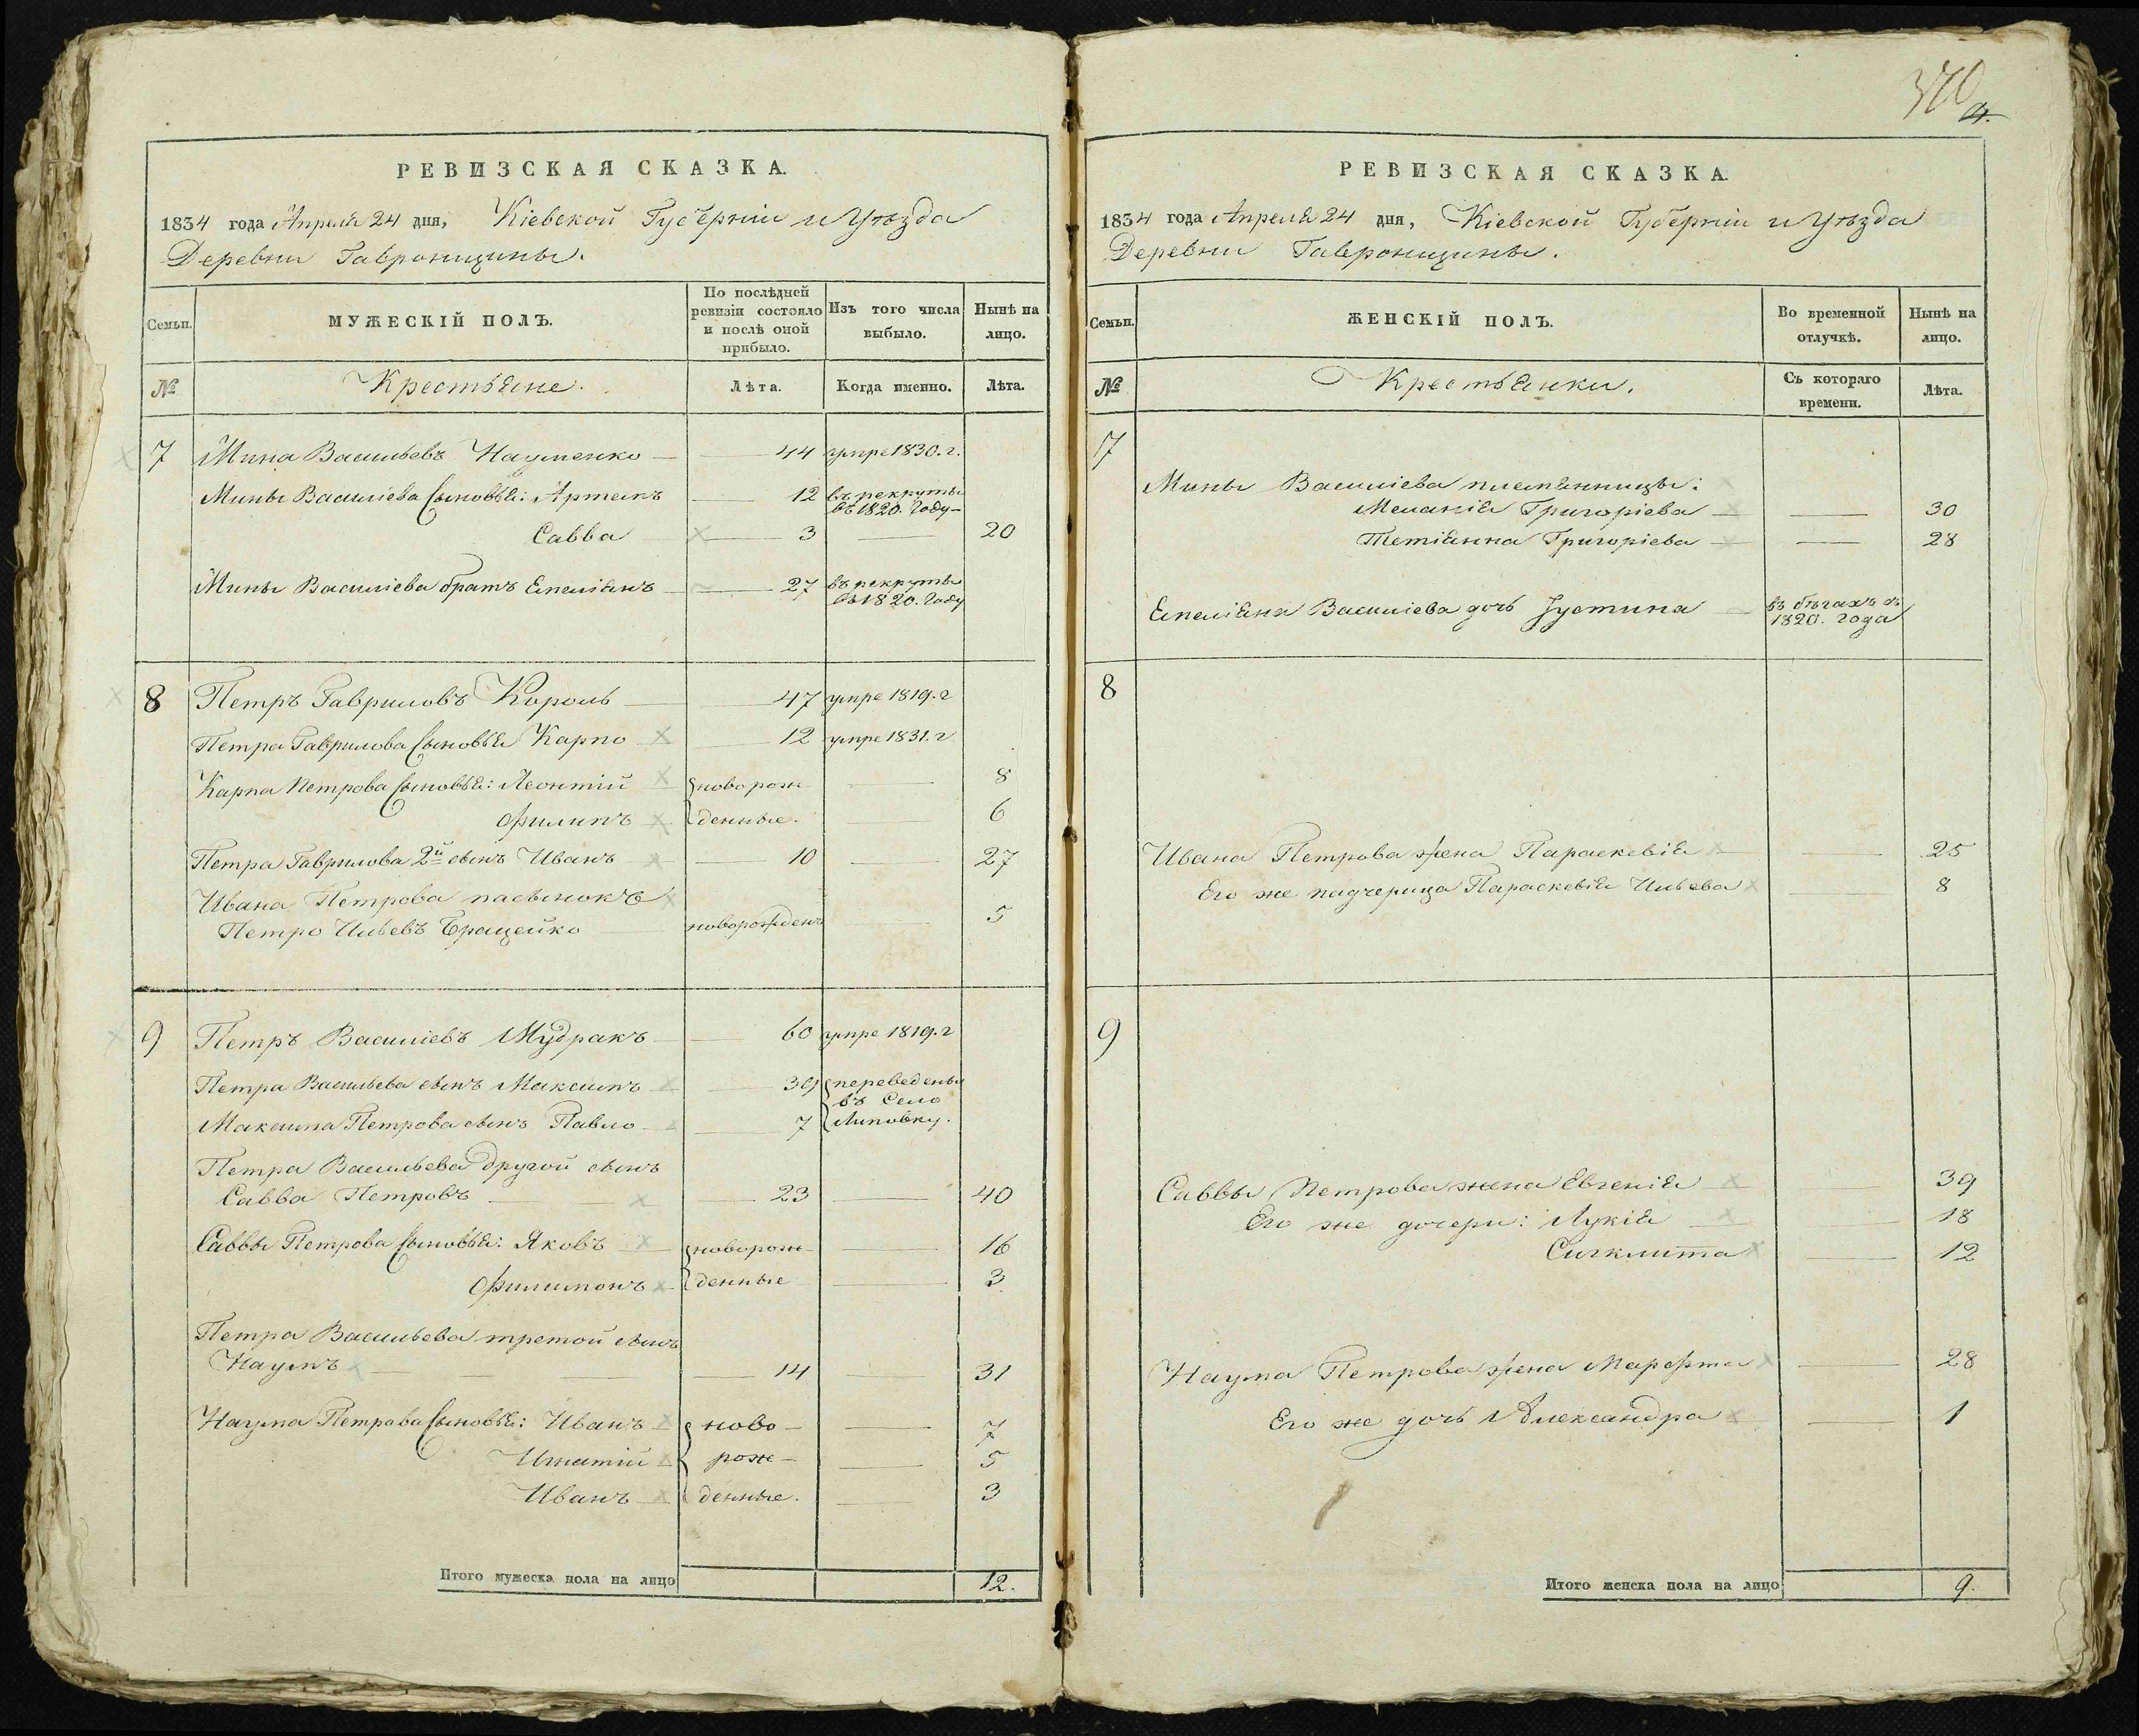 РЕВИЗСКАЯ СКАЗКА.
1834 года Апреля 24 дня, Кіевской Губерніи и Уѣзда
Деревни Гавронщины.
Семьи.
МУЖЕСКІЙ ПОЛЪ.
По послѣдней
ревизіи состояло
и послѣ оной
прибыло.
Изъ того числа
выбыло.
Нынѣ на
лицо.
№
Крестьяне.
Лѣта.
Когда именно.
Лѣта.
7 Мина Васильевъ Науменко 44 умре 1830. г.
Мины Василіева Сыновья: Артемъ 12 въ рекруты
въ 1820. Году
Савва 3 20
Мины Василіева братъ Емеліянъ 27 въ рекруты
въ 1820. Году
8 Петръ Гавриловъ Король 47 умре 1819. г
Петра Гаврилова Сыновья Карпо 12 умре 1831. г
Карпа Петрова Сыновья: Леонтій новорож 8
Филипъ денные. 6
Петра Гаврилова 2й сынъ Иванъ 10 27
Ивана Петрова пасынокъ
Петро Ильевъ Брацейко новорожденъ 5
9 Петръ Василіевъ Мудракъ 60 умре 1819. г
Петра Васильева сынъ Максимъ 39 переведены
въ Село
Максима Петрова сынъ Павло 7 Липовку.
Петра Васильева другой сынъ
Савва Петровъ 23 40
Саввы Петрова Сыновья: Яковъ новорож 16
Филимонъ денные 3
Петра Васильева третой сынъ
Наумъ 14 31
Наума Петрова Сыновья: Иванъ ново- 7
Игнатій рож- 5
Иванъ денные. 3
Итого мужеска пола на лицо 12.
370
4.
РЕВИЗСКАЯ СКАЗКА.
1834 года Апреля 24 дня, Кіевской Губерніи и Уѣзда
Деревни Гавронщины.
Семьи.
ЖЕНСКІЙ ПОЛЪ.
Во временной
отлучкѣ.
Нынѣ на
лицо.
№
Крестьянки.
Съ котораго
времени.
Лѣта.
7
Мины Василіева племянницы:
Меланія Григоріева 30
Тетіянна Григоріева 28
Емеліяна Василіева дочь Іустина въ бѣгахъ съ
1820. года
8
Ивана Петрова жена Параскевія 25
Его же падчерица Параскевія Ильева 8
9
Саввы Петрова жена Евгенія 39
Его же дочери: Лукія 18
Сигклита 12
Наума Петрова жена Марфта 28
Его же дочь Александра 1
Итого женска пола на лицо 9.